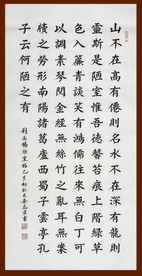 山不在高有僊則名水不在深有龍則
靈斯是陋室惟吾德馨苔痕上階綠草
色入簾青談笑有鴻儒往來無白丁可
以調素琴閱金經無絲竹之亂耳無案
牘之勞形南陽諸葛廬西蜀子雲亭孔
子云何陋之有
劉禹錫陋室銘